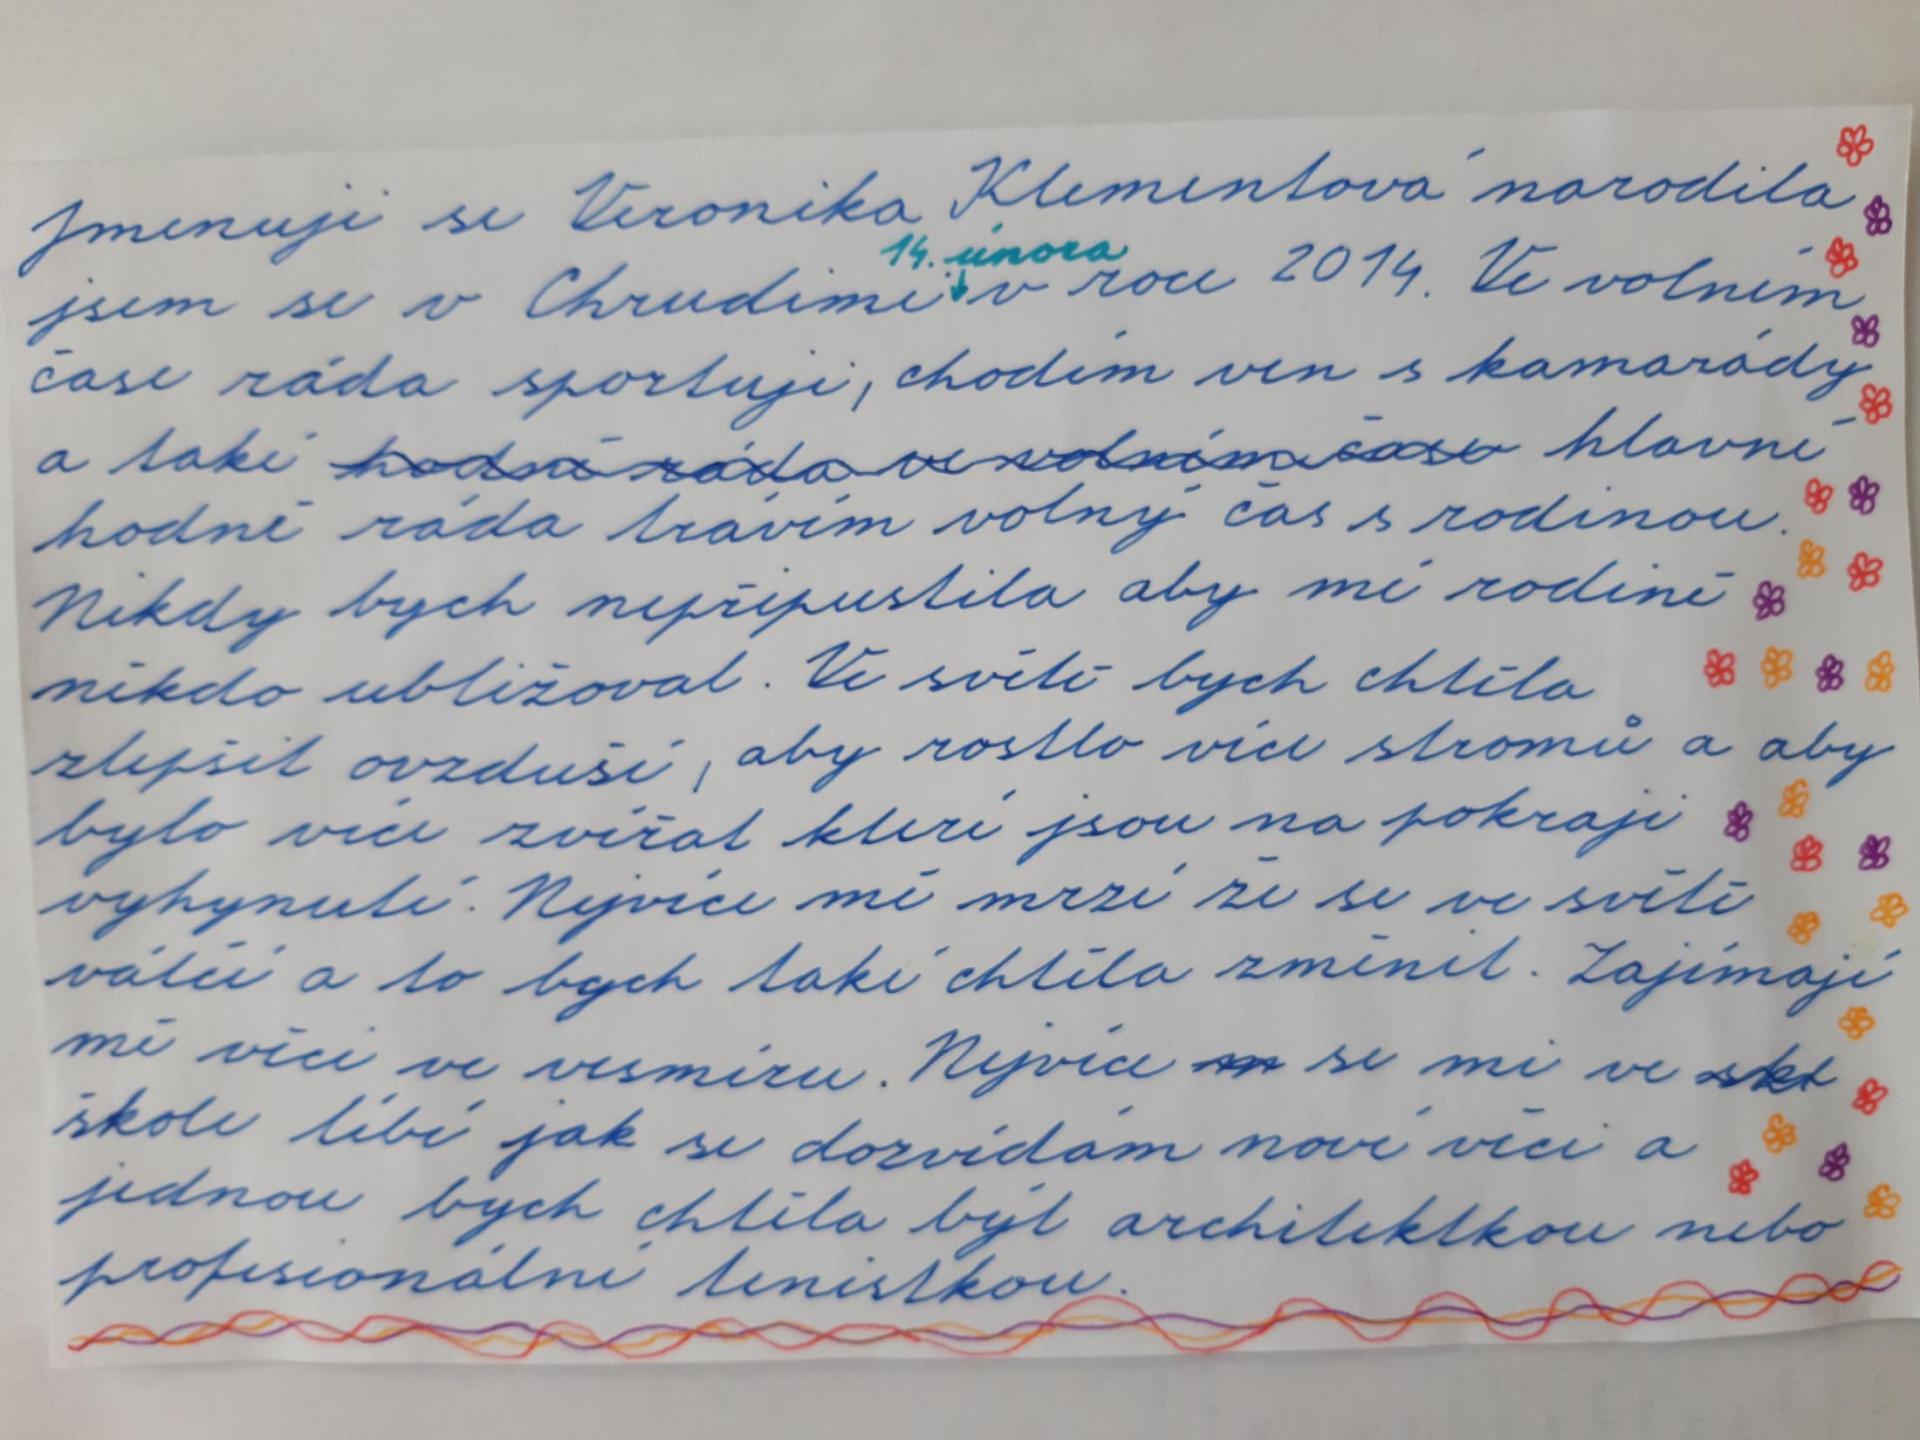 Jmenuji se Veronika Klementová narodila
14. února
jsem se v Chrudimi v roce 2014. Ve volném
čase ráda sportuji, chodím ven s kamarády
a také hodně ráda ve volném čase hlavně
hodně ráda trávím volný čas s rodinou.
Nikdy bych nepřipustila aby mé rodině
někdo ubližoval. Ve světě bych chtěla
zlepšit ovzduší, aby rostlo více stromů a aby
bylo více zvířat které jsou na pokraji
vyhynutí. Nejvíce mě mrzí že se ve světě
válčí a to bych také chtěla změnit. Zajímají
mě věci ve vesmíru. Nejvíce m se mi ve skl
škole líbí jak se dozvídám nové věci a
jednou bych chtěla být architektkou nebo
profesionální tenistkou.